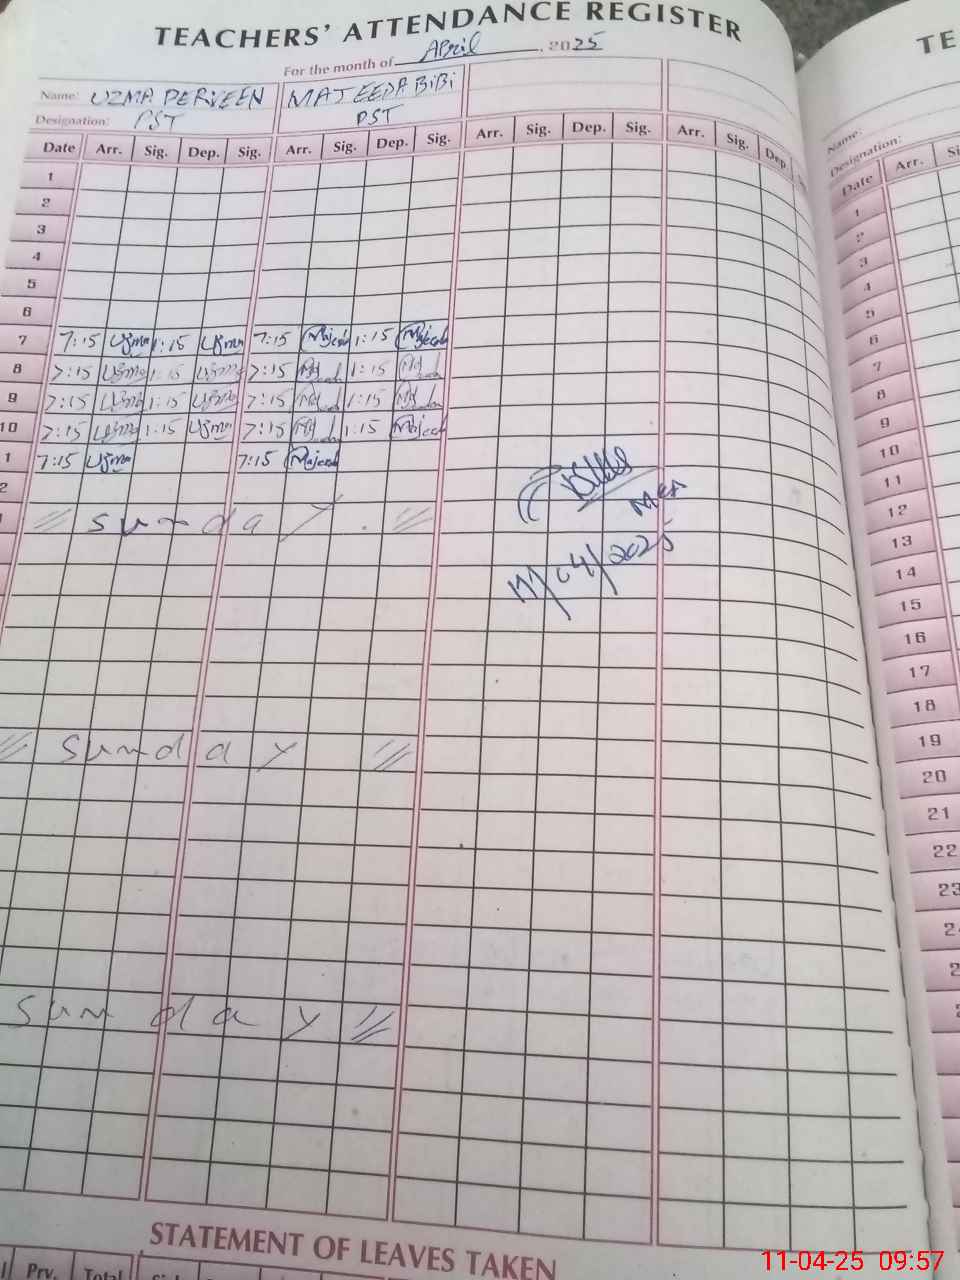 TEACHERS' ATTENDANCE REGISTER
For the month of April, 2025
Name: UZMA PERVEEN MAJEEDA BIBI
Designation: PST PST
Date Arr. Sig. Dep. Sig. Arr. Sig. Dep. Sig. Arr. Sig. Dep. Sig. Arr. Sig. Dep.
1
2
3
4
5
6
7 7:15 Uzma 1:15 Uzma 7:15 Majeeda 1:15 Majeeda
8 7:15 Uzma 1:15 Uzma 7:15 1:15
9 7:15 Uzma 1:15 Uzma 7:15 1:15
10 7:15 Uzma 1:15 Uzma 7:15 1:15 Majeeda
1 7:15 Uzma 7:15 Majeeda
2
// Sunday. //
MEA
11/04/2025
// Sunday //
Sunday //
STATEMENT OF LEAVES TAKEN
Prv. Total
TE
Name:
Designation:
Date Arr. Si
1
2
3
4
5
6
7
8
9
10
11
12
13
14
15
16
17
18
19
20
21
22
23
11-04-25 09:57